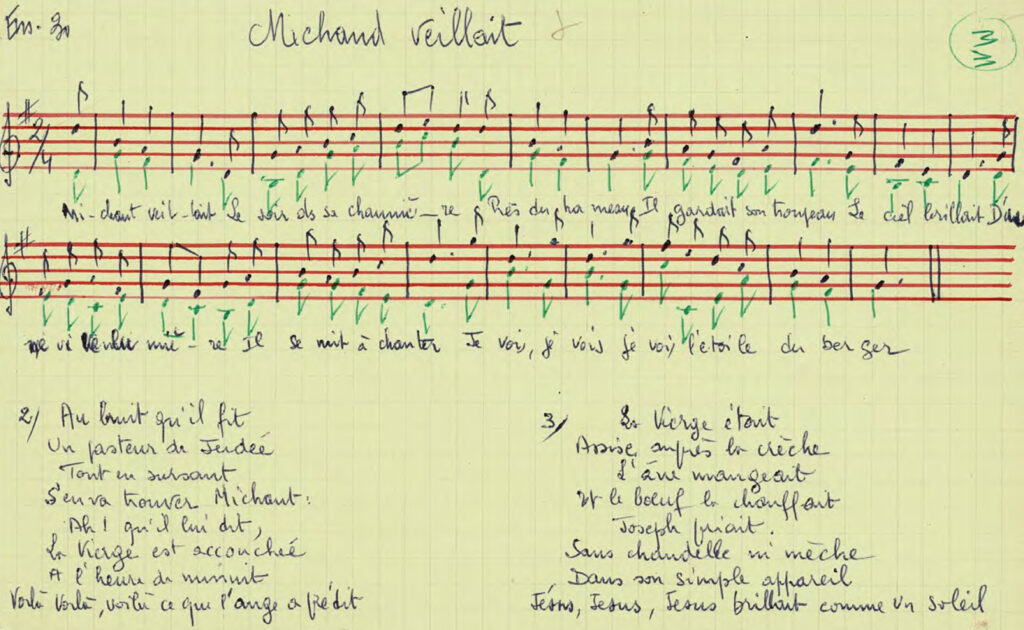 Michaud Veillait
2/4
Mi-chaut veil-lait Le soir ds sa chaumiè-re Près du ha meau Il gardait son troupeau Le ciel brillait D'u
ne vi ve lu miè-re Il se mit à chanter Je vois, je vois je vois l'étoile du berger
2/ Au bruit qu'il fit
Un pasteur de Judée
Tout en sursaut
S'en va trouver Michaut:
Ah! qu'il lui dit,
La Vierge est accouchée
A l'heure de minuit
Voilà Voilà, voilà ce que l'ange a prédit
3/ La Vierge était
Assise auprès la crèche
L'âne mangeait
Et le boeuf la chauffait
Joseph priait.
Sans chandelle ni mèche
Dans son simple appareil
Jésus, Jesus, Jesus brillait comme un soleil